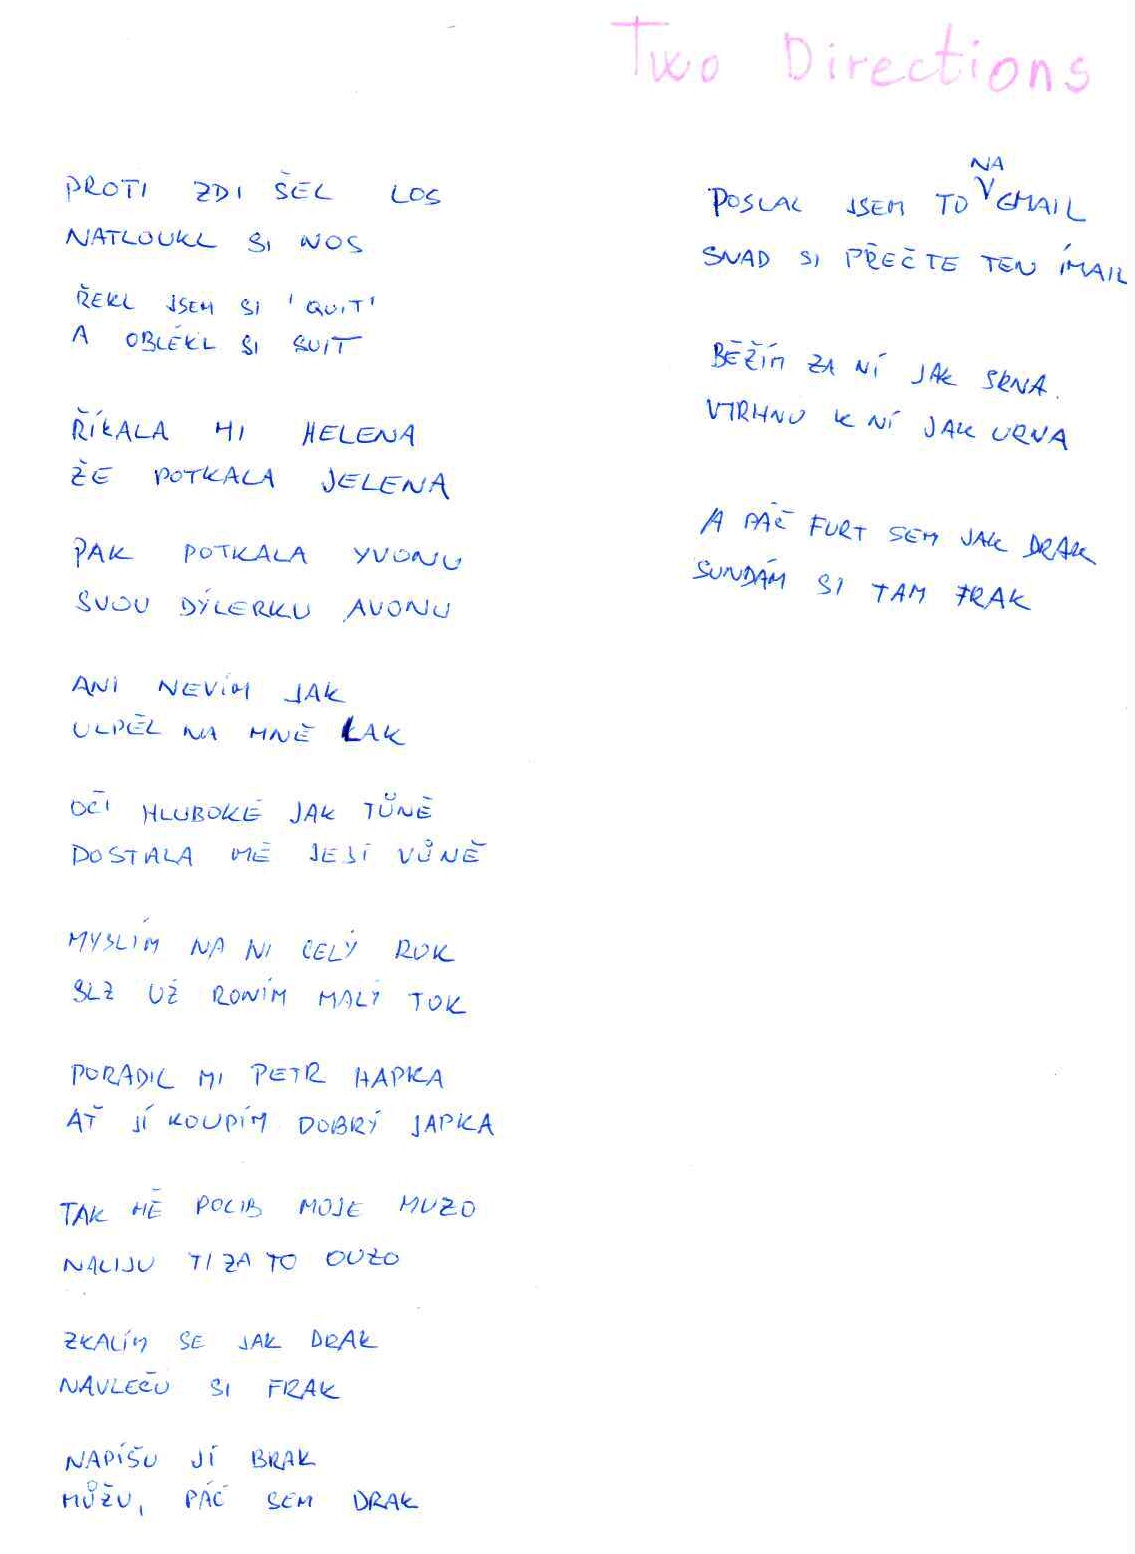 Two Directions
PROTI ZDI ŠEL LOS
NATLOUKL SI NOS
ŘEKL JSEM SI 'QUIT'
A OBLÉKL SI SUIT
ŘÍKALA MI HELENA
ŽE POTKALA JELENA
PAK POTKALA YVONU
SVOU DÝLERKU AVONU
ANI NEVÍM JAK
ULPĚL NA MNĚ LAK
OČI HLUBOKÉ JAK TŮNĚ
DOSTALA MĚ JEJÍ VŮNĚ
MYSLÍM NA NI CELÝ ROK
SLZ UŽ RONÍM MALÝ TOK
PORADIL MI PETR HAPKA
AŤ JÍ KOUPÍM DOBRÝ JAPKA
TAK MĚ POLIB MOJE MUZO
NALIJU TI ZA TO OUZO
ZKALÍM SE JAK DRAK
NAVLEČU SI FRAK
NAPÍŠU JÍ BRAK
MŮŽU, PÁČ SEM DRAK
POSLAL JSEM TO NA GMAIL
SNAD SI PŘEČTE TEN ÍMAIL
BĚŽÍM ZA NÍ JAK SRNA.
VTRHNU K NÍ JAK URNA
A PÁČ FURT SEM JAK DRAK
SUNDÁM SI TAM FRAK